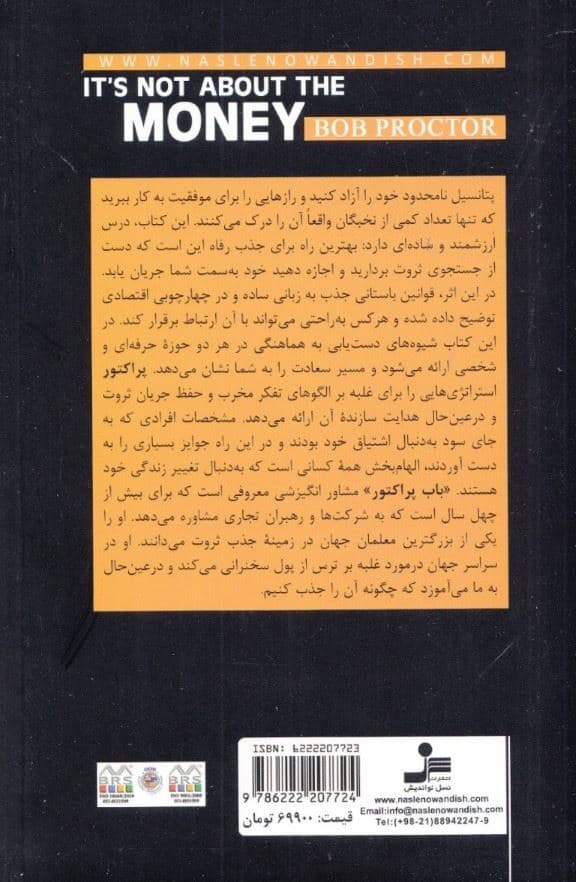 WWW.NASLENOWANDISH.COM
IT'S NOT ABOUT THE
MONEY BOB PROCTOR
پتانسیل نامحدود خود را آزاد کنید و رازهایی را برای موفقیت به کار ببرید
که تنها تعداد کمی از نخبگان واقعاً آن را درک می‌کنند. این کتاب، درس
ارزشمند و ساده‌ای دارد: بهترین راه برای جذب رفاه این است که دست
از جستجوی ثروت بردارید و اجازه دهید خود به‌سمت شما جریان یابد.
در این اثر، قوانین باستانی جذب به زبانی ساده و در چهارچوبی اقتصادی
توضیح داده شده و هرکس به‌راحتی می‌تواند با آن ارتباط برقرار کند. در
این کتاب شیوه‌های دست‌یابی به هماهنگی در هر دو حوزهٔ حرفه‌ای و
شخصی ارائه می‌شود و مسیر سعادت را به شما نشان می‌دهد. پراکتور
استراتژی‌هایی را برای غلبه بر الگوهای تفکر مخرب و حفظ جریان ثروت
و درعین‌حال هدایت سازندهٔ آن ارائه می‌دهد. مشخصات افرادی که به
جای سود به‌دنبال اشتیاق خود بودند و در این راه جوایز بسیاری را به
دست آوردند، الهام‌بخش همهٔ کسانی است که به‌دنبال تغییر زندگی خود
هستند. «باب پراکتور» مشاور انگیزشی معروفی است که برای بیش از
چهل سال است که به شرکت‌ها و رهبران تجاری مشاوره می‌دهد. او را
یکی از بزرگترین معلمان جهان در زمینهٔ جذب ثروت می‌دانند. او در
سراسر جهان درمورد غلبه بر ترس از پول سخنرانی می‌کند و درعین‌حال
به ما می‌آموزد که چگونه آن را جذب کنیم.
ISBN: 6222207723
9 786222 207724
قیمت: ۶۹۹۰۰ تومان
نسل نواندیش
www.naslenowandish.com
Email:info@naslenowandish.com
Tel:(+98-21)88942247-9
BRS
BRS